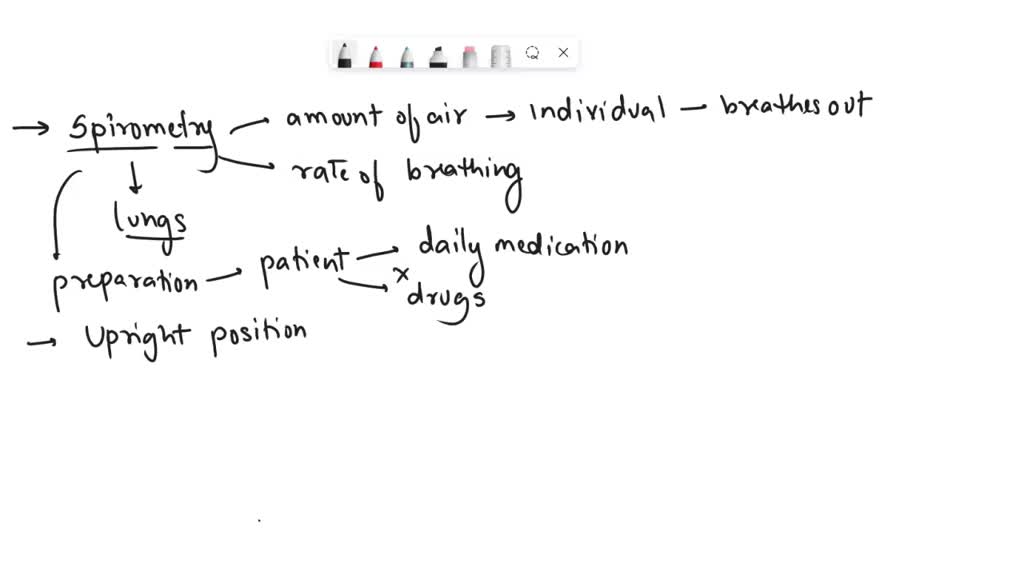 → Spirometry amount of air → individual – breathes out
rate of breathing
↓
lungs
preparation – patient → daily medication
× drugs
→ Upright position